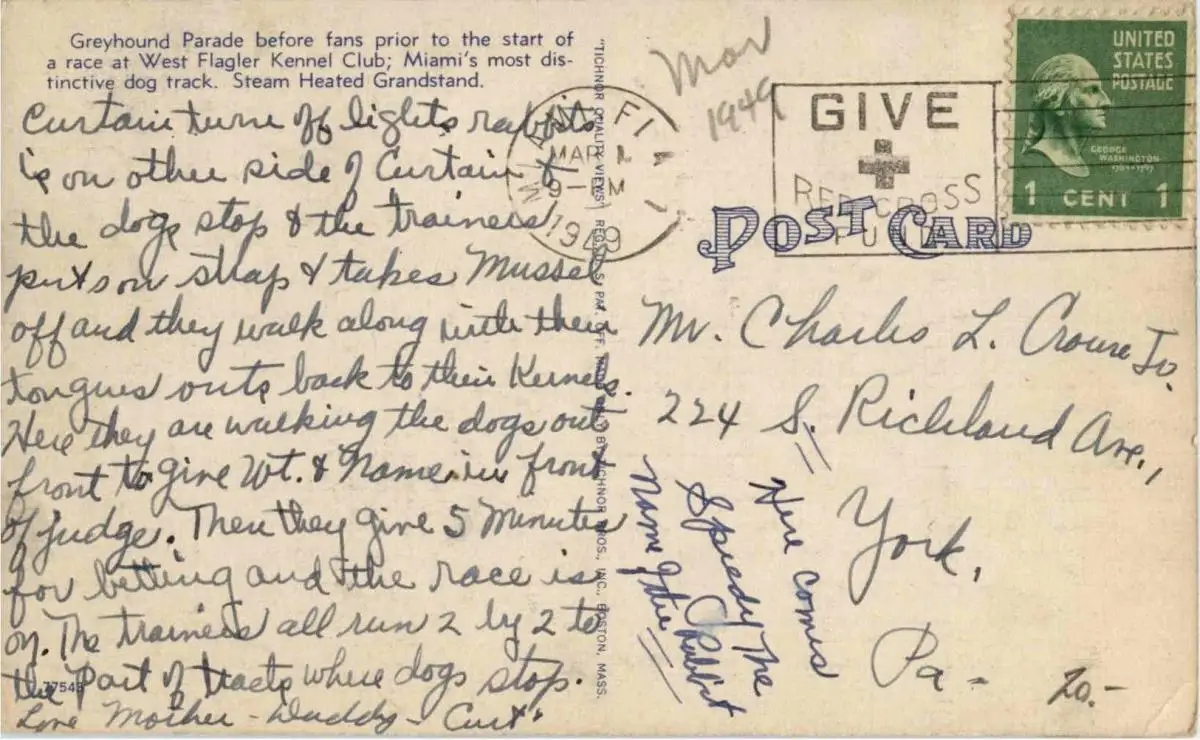 Greyhound Parade before fans prior to the start of
a race at West Flagler Kennel Club; Miami's most dis-
tinctive dog track. Steam Heated Grandstand.
Curtain turn off lights rabbit
is on other side of Curtain &
the dogs stop & the trainers
puts on strap & takes Mussel
off and they walk along with their
tongues outs back to their Kernels.
Here they are walking the dogs out
front to give Wt. & Name in front
of judge. Then they give 5 Minutes
for betting and the race is
on. The trainers all run 2 by 2 to
the Part of tracts where dogs stop.
77543
Love Mother - Daddy - Curt.
"TICHNOR QUALITY VIEWS"
BY TICHNOR BROS., INC., BOSTON, MASS.
Mar
1949
MIAMI FLA
MAR
9-
1949
GIVE
RED CROSS
FUND
UNITED
STATES
POSTAGE
GEORGE
WASHINGTON
1 CENT 1
POST CARD
Mr. Charles L. Jr.
224 S. Richland Ave.,
York,
Pa -
20.-
Here comes
Speedy The
Rabbit
Name